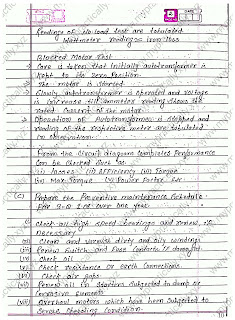 Readings of No load test are tabulated
Wattmeter reading as iron loss
Blocked Motor Test
Care is taken that initially autotransformer is
kept to the zero position
The motor is started
Slowly autotransformer is operated and voltage
is increase till ammeter reading shows the
rated current of the motor
Operation of Autotransformer is stopped and
reading of the respective meter are tabulated
in observation
From the Circuit diagram Completed Performance
can be checked such as
(i) losses (ii) Efficiency (iii) Torque
(iv) Max Torque (v) Power Factor
(C) Prepare the Preventive maintenance Schedule
for one year
Check all high speed bearings and renew if
necessary
Clean and varnish dirty and oily windings
(iii) Renew Switch and Fuse Contacts if damaged
(iv) Check oil
(v) Check resistance or earth connections
(vi) Check air gaps
(vii) Renew oil in starters subjected to damp or
corrosive elements
(viii) Overhaul motors which have been subjected to
severe operating condition.